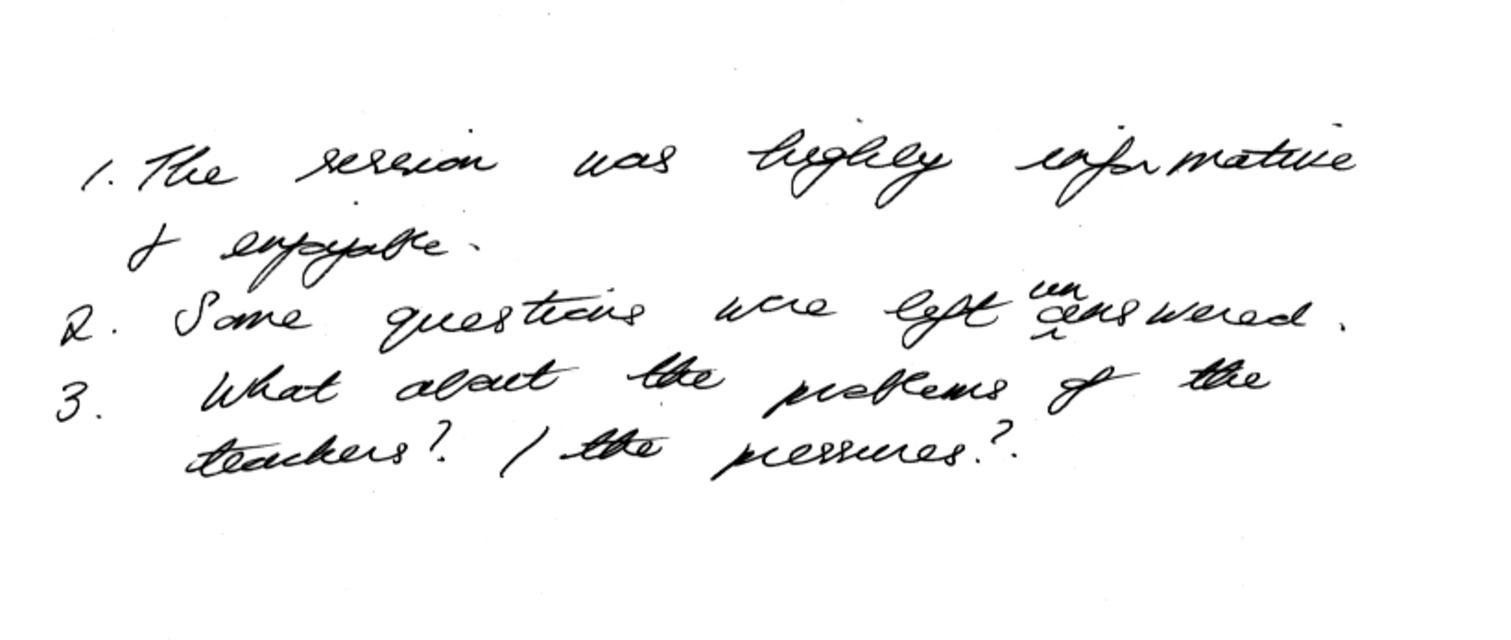 1. The session was highly informative
& enjoyable.
2. Some questions were left unanswered.
3. What about the problems of the
teachers? / the pressures.?.